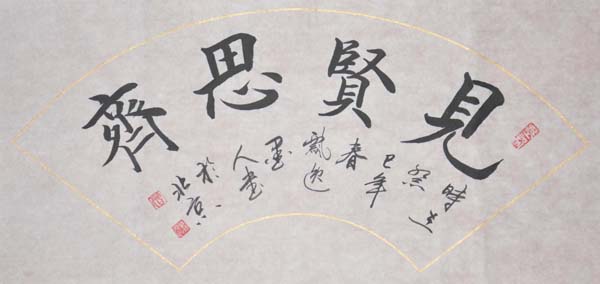 見賢思齊
時在
癸
巳年
春
飄逸
墨
人書
於
北京